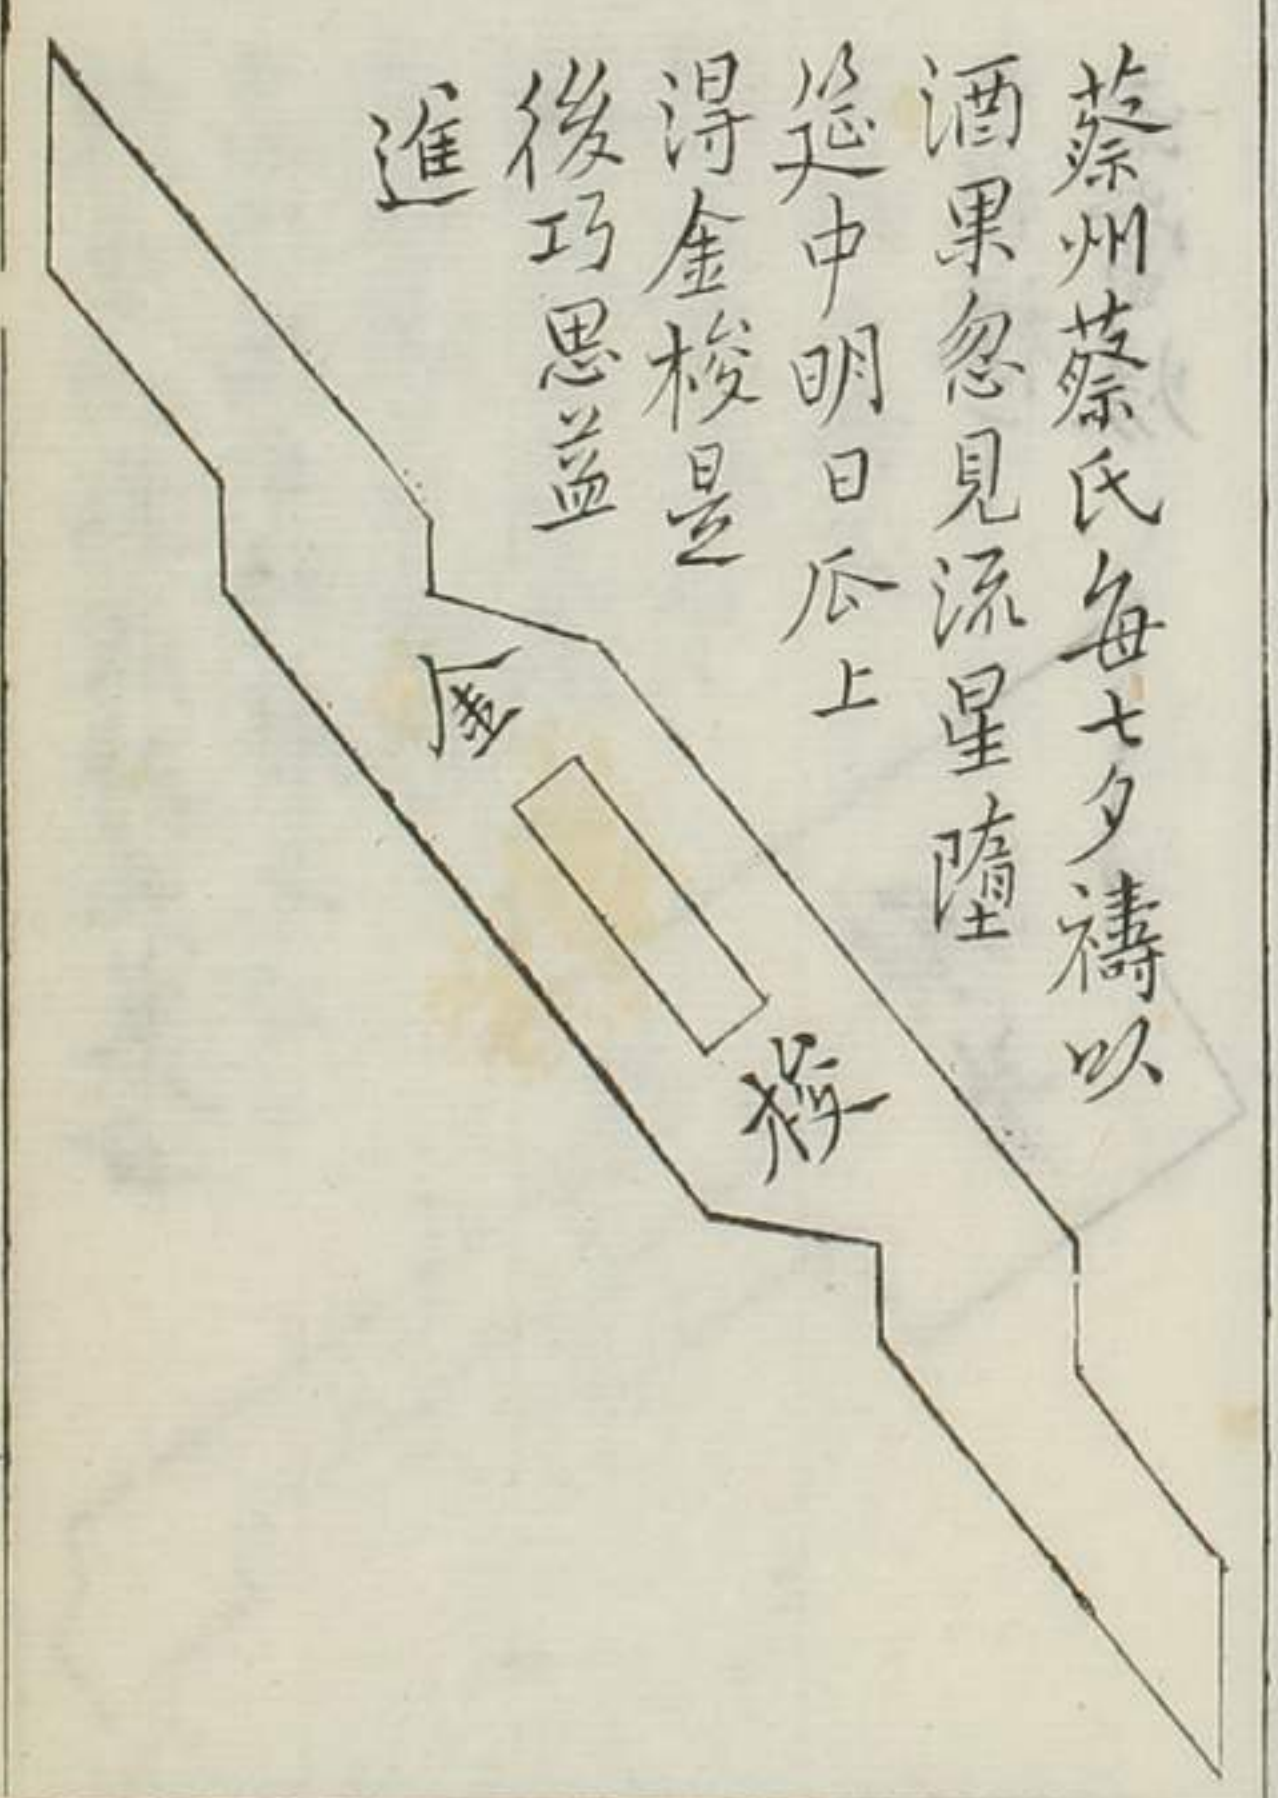 蔡州蔡氏每七夕禱以
酒果忽見流星墮
筵中明日瓜上
得金梭是
後巧思益
進
金
梭